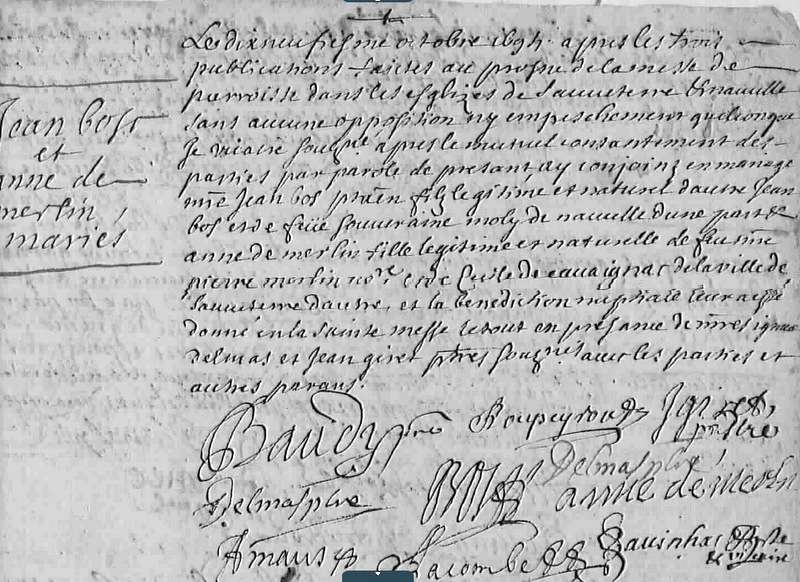 Jean boss
et
anne de
merlin,
mariés
Le dixneufiesme octobre 1694 apres les trois
publications faictes au prosne de la messe de
parroisse dans les esglizes de Sauveterre & nauville
sans aucune opposition ny empeschement quelconque
Je vicaire soubzne apres le mutuel consantement des
parties par parole de presant, ay conjoinz en mariage
mre Jean bos filz legitime et naturel d'autre Jean
bos et de feüe Souveraine moly de nauville d'une part &
anne de merlin fille legitime et naturelle de feu mre
pierre merlin nore et de de cavaignac de la ville de
Sauveterre d'autre, et la benediction nuptiale leur a esté
donné en la sainte messe le tout en presance de mres
delmas et Jean giret ptres soubznés avec les parties et
autres parans.
Baudy pre Roupeyroux J giret,
prestre
Delmas ptre
Delmas ptre Boss anne de merlin
Amans Lacombe Savinhac